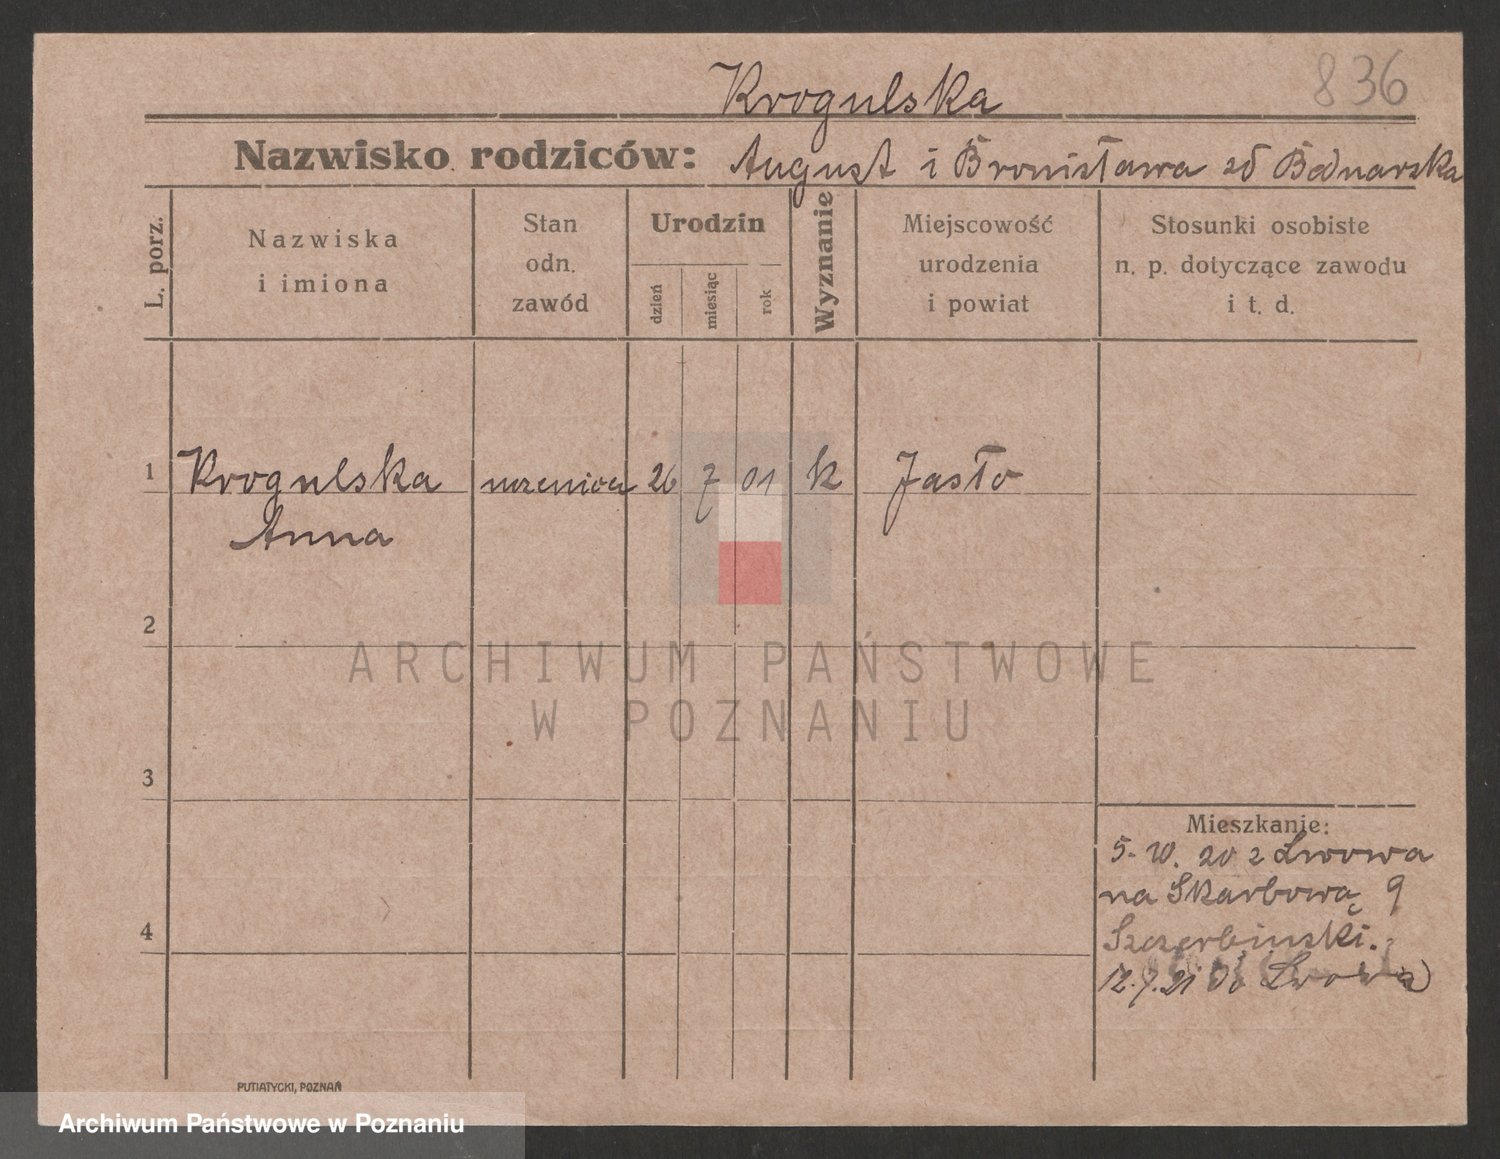 Krogulska
836
Nazwisko rodziców: August i Bronisława zd Bednarska
L. porz.
Nazwiska
i imiona
Stan
odn.
zawód
Urodzin
dzień
miesiąc
rok
Wyznanie
Miejscowość
urodzenia
i powiat
Stosunki osobiste
n. p. dotyczące zawodu
i t. d.
1 Krogulska uczenica 26 7 01 k Jasło
Anna
2
ARCHIWUM PAŃSTWOWE
W POZNANIU
3
Mieszkanie:
5. 10. 20 z Lwowa
na Skarbową 9
Szczerbiński.
4
12. 7. 21 do Lwowa
PUTIATYCKI, POZNAŃ
Archiwum Państwowe w Poznaniu